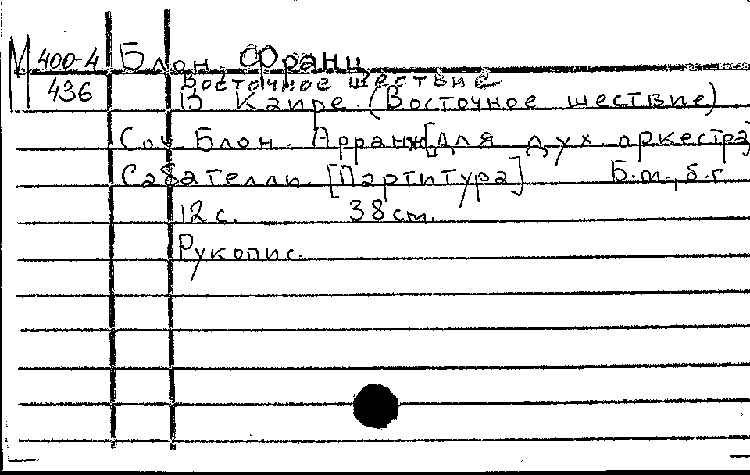 М 400-4 Блон, Франц
436 Восточное шествие
В Каире (Восточное шествие)
Соч. Блон. Арранж. [для дух. оркестра]
Сабателли [Партитура] Б.м., б.г.
12 с. 38 см.
Рукопис.